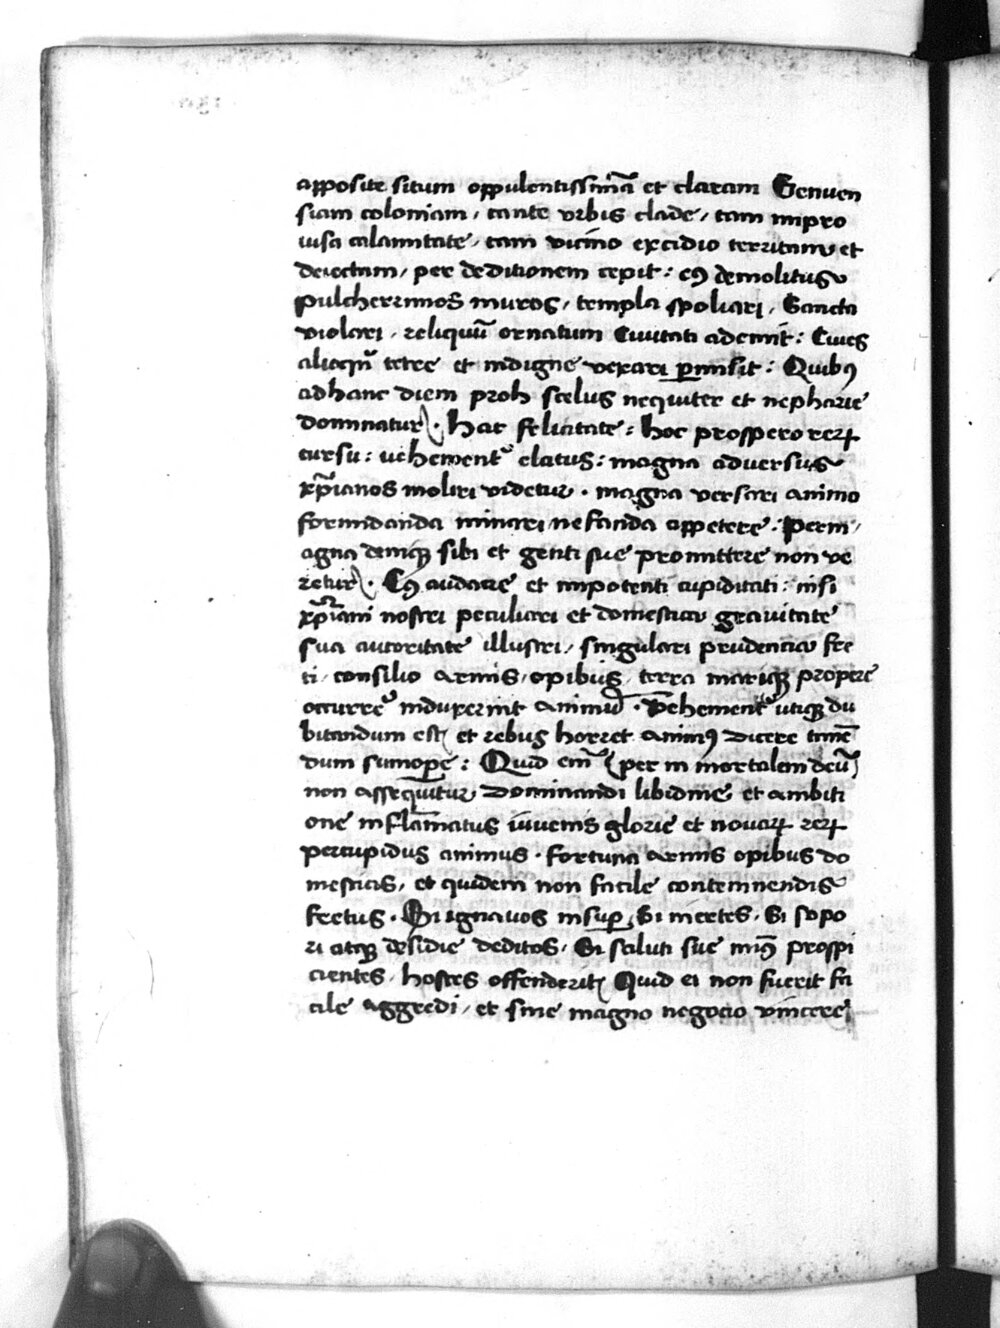 apposite situm oppulentissimā et claram Genuen
sium coloniam, tante vrbis clade, tam impro
uisa calamitate, tam vicino excidio territam et
deiectam, per deditionem cepit: cuꝯ demolitus
pulcherrimos muros, templa spoliari, Sancta
violari, reliquū ornatum Ciuitati ademit: Ciues
alioqn̄ tetre et indigne vexari ꝑmisit: Quibꝯ
ad hanc diem proh scelus nequiter et nepharie
dominatur. Hac felicitate: hoc prospero reꝝ
cursu: uehement elatus: magna aduersus
xp̄ianos moliri videtur. magna versari animo
formidanda minari, nefanda appetere: Perm
agna deniqꝫ sibi et genti sue promittere non ve
retur. Cuꝯ audacie et impotenti cupiditati: nisi
xp̄iani nostri peculiari et domestica grauitate
sua autoritate illustri, singulari prudentia fre
ti, consilio armis, opibus, terra mariqꝫ propere
occurrere induxerint animū. Vehementer utiqꝫ du
bitandum est et rebus horret animꝯ dicere timen̄
dum sumope: Quid em̄ (per in mortalem deū)
non assequitur Dominandi libidine et ambiti
one inflāmatus iuuenis glorie et nouaꝝ reꝝ
percupidus animus. fortuna armis opibus do
mesticis, et quidem non facile contemnendis
fretus. Si ignauos insuꝑ, Si inertes, Si sopo
ri atqꝫ desidie deditos, Si saluti sue minꝯ prospi
cientes, hostes offenderit Quid ei non fuerit fa
cile aggredi, et sine magno negocio vincere